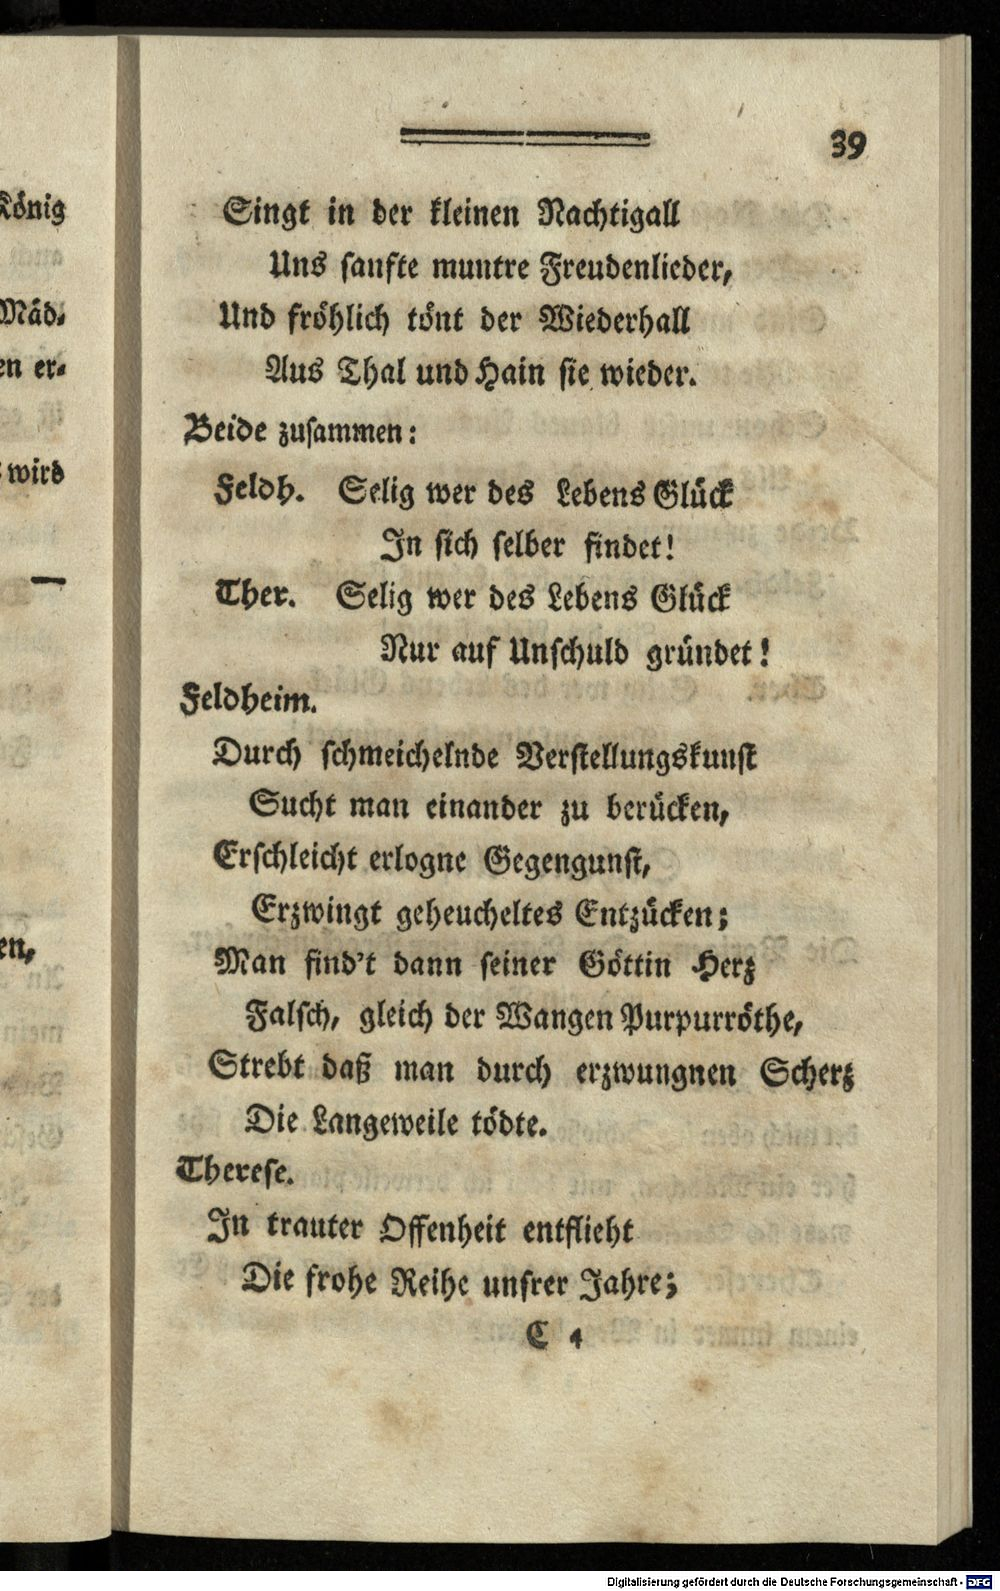 39
Singt in der kleinen Nachtigall
Uns sanfte muntre Freudenlieder,
Und fröhlich tönt der Wiederhall
Aus Thal und Hain sie wieder.
Beide zusammen:
Feldh. Selig wer des Lebens Glück
In sich selber findet!
Ther. Selig wer des Lebens Glück
Nur auf Unschuld gründet!
Feldheim.
Durch schmeichelnde Verstellungskunst
Sucht man einander zu berücken,
Erschleicht erlogne Gegengunst,
Erzwingt geheucheltes Entzücken;
Man find't dann seiner Göttin Herz
Falsch, gleich der Wangen Purpurröthe,
Strebt daß man durch erzwungnen Scherz
Die Langeweile tödte.
Therese.
In trauter Offenheit entflieht
Die frohe Reihe unsrer Jahre;
C 4
König
Mäd-
en er-
wird
—
en,
Digitalisierung gefördert durch die Deutsche Forschungsgemeinschaft - DFG